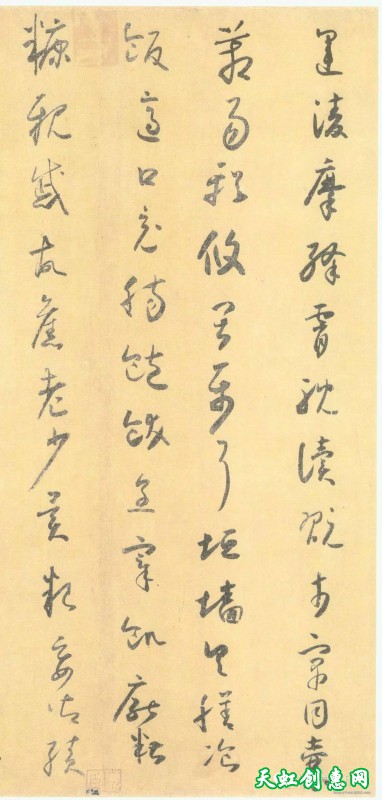 運凌摩絳霄耽讀翫市寓目囊
箱易輶攸畏屬耳垣墻具膳飡
飯適口充腸飽飫烹宰飢厭糟
糠親戚故舊老少異糧妾御績
天虹創惠网